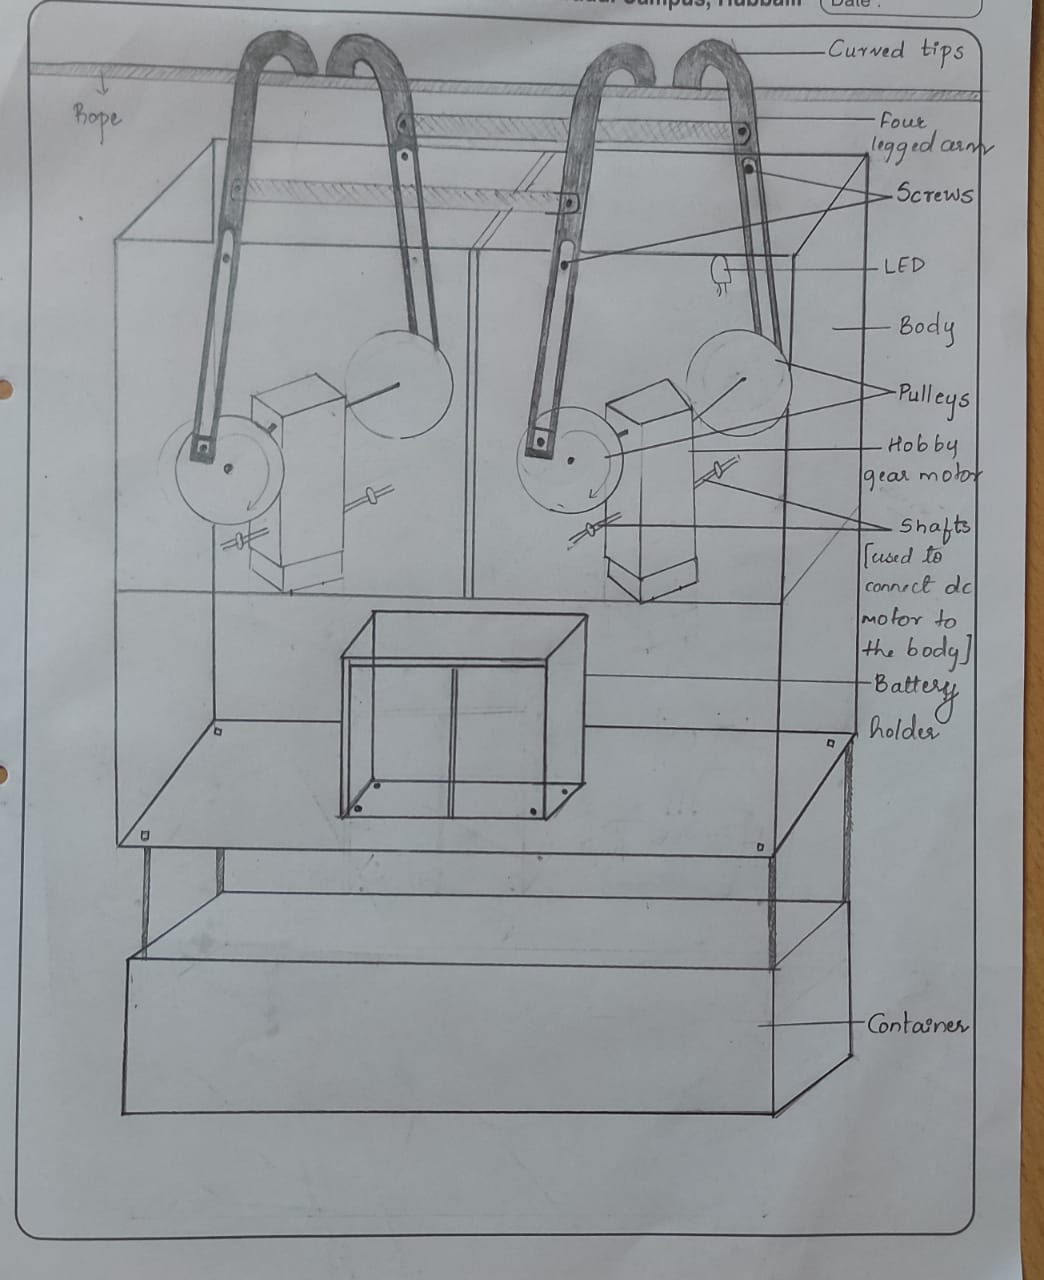 Campus, Hubballi
Date :
Curved tips
Rope
Four
legged arm
Screws
LED
Body
Pulleys
Hobby
gear motor
Shafts
[used to
connect dc
motor to
the body]
Battery
holder
Container